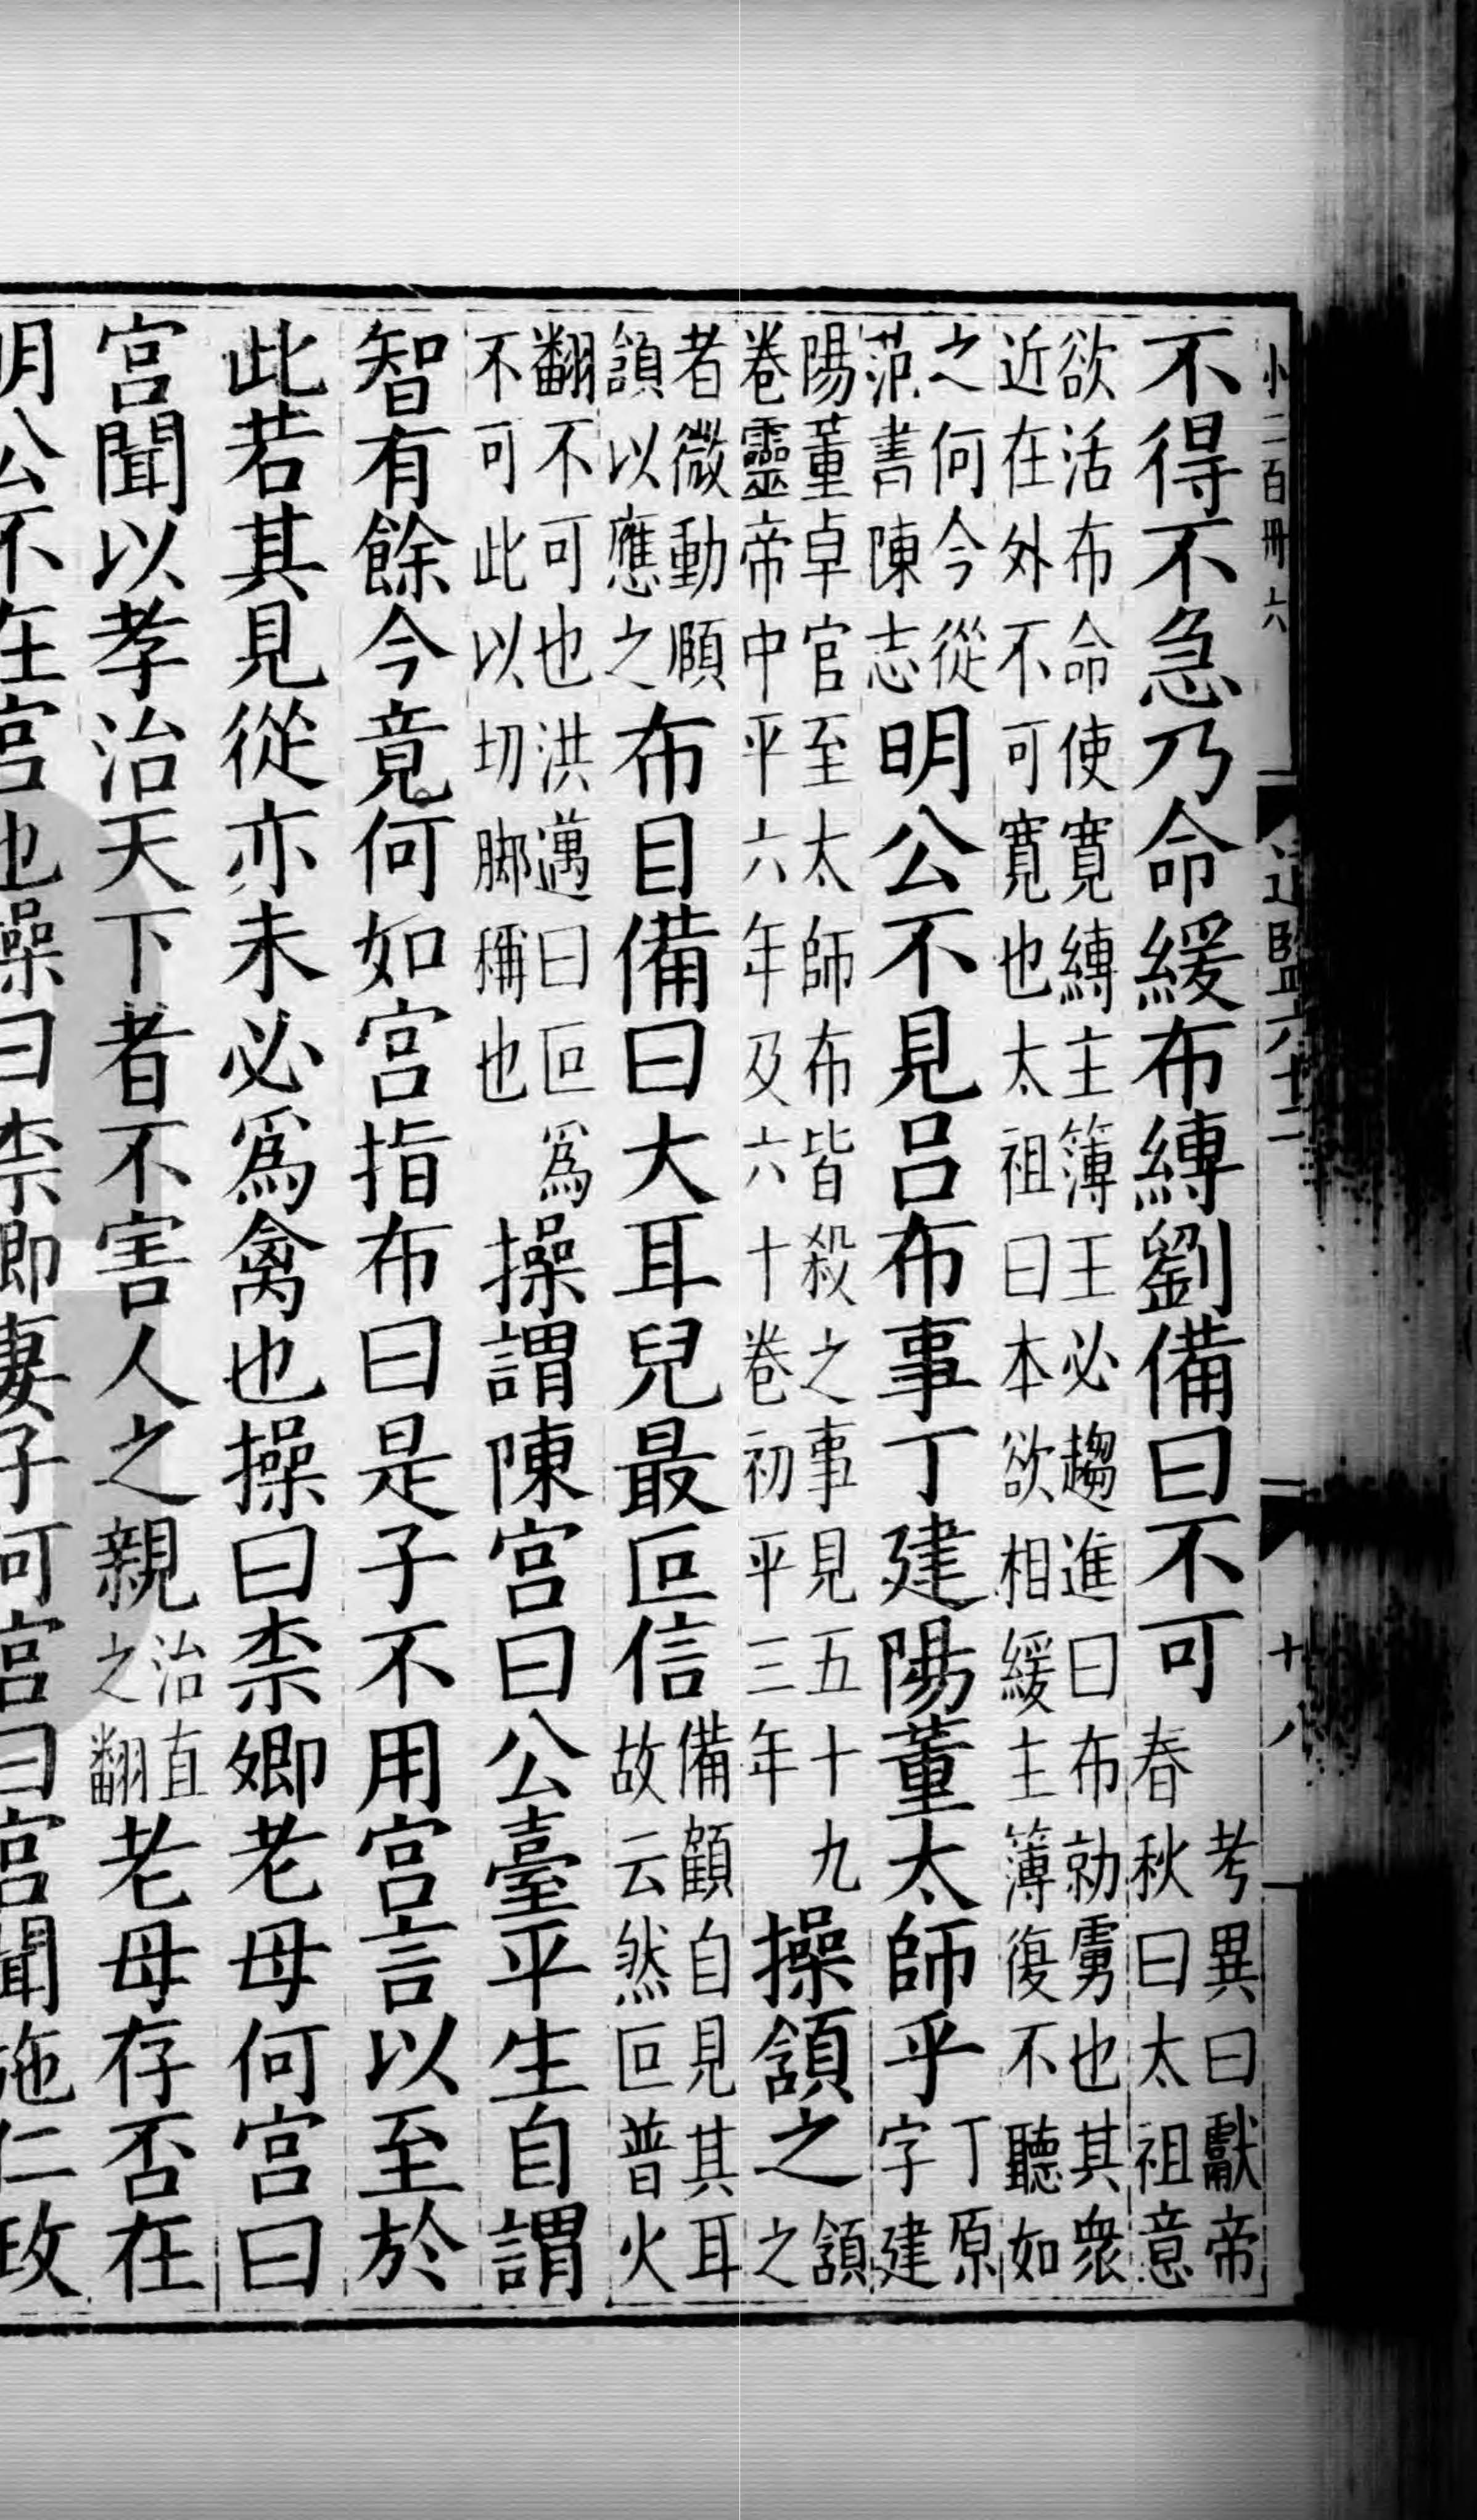 小二百卌六 通鑑六十二 十八
不得不急乃命緩布縛劉備曰不可考異曰獻帝春秋曰太祖意
欲活布命使寬縛主簿王必趨進曰布勍虜也其衆近在外不可寬也太祖曰本欲相緩主簿復不聽如
之何今從范書陳志明公不見呂布事丁建陽董太師乎丁原字建
陽董卓官至太師布皆殺之事見五十九卷靈帝中平六年及六十卷初平三年操頷之頷之
者微動頤頷以應之布目備曰大耳兒最叵信備顧自見其耳故云然叵普火
翻不可也洪邁曰叵爲不可此以切脚稱也操謂陳宮曰公臺平生自謂
智有餘今竟何如宮指布曰是子不用宮言以至於
此若其見從亦未必爲禽也操曰柰卿老母何宮曰
宮聞以孝治天下者不害人之親治直之翻老母存否在
明公不在宮也操曰柰卿妻子何宮曰宮聞施仁政